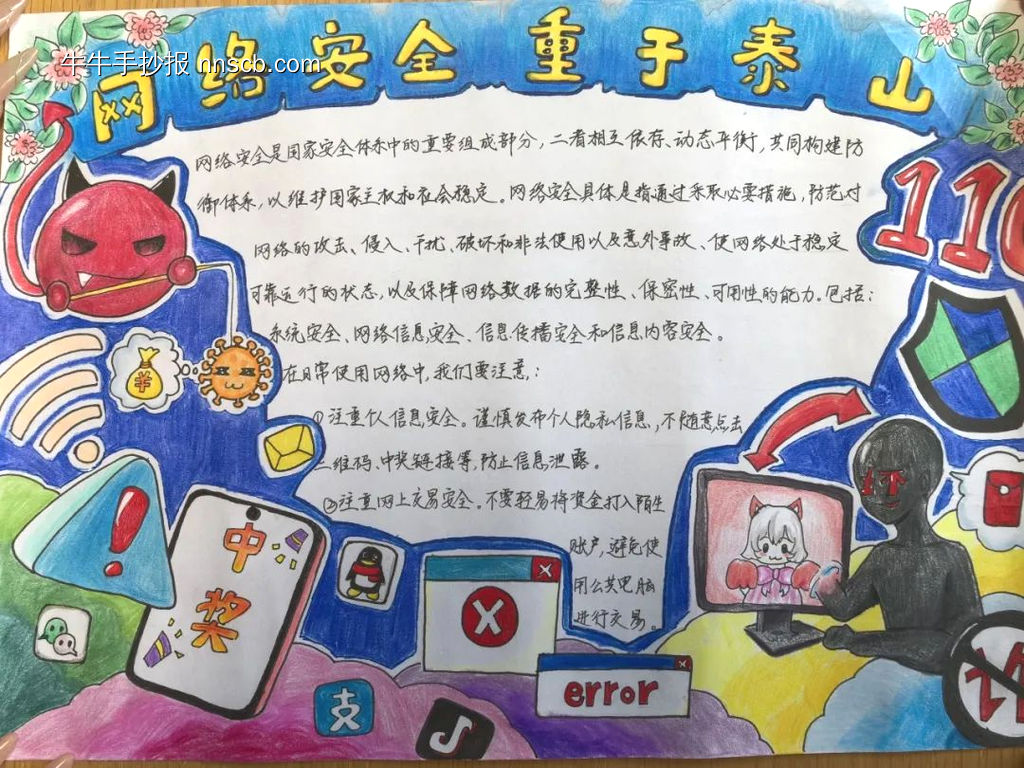 网络安全重于泰山
牛牛手抄报 nnscb.com
网络安全是国家安全体系中的重要组成部分，二者相互依存、动态平衡，共同构建防
御体系，以维护国家主权和社会稳定。网络安全具体是指通过采取必要措施，防范对
网络的攻击、侵入、干扰、破坏和非法使用以及意外事故、使网络处于稳定
可靠运行的状态，以及保障网络数据的完整性、保密性、可用性的能力。包括：
系统安全、网络信息安全、信息传播安全和信息内容安全。
在日常使用网络中，我们要注意：
①注重个人信息安全。谨慎发布个人隐私信息，不随意点击
二维码、中奖链接等，防止信息泄露。
②注意网上交易安全。不要轻易将资金打入陌生
账户，避免使
用公共电脑
进行交易。
110
¥
!
中
奖
X
X
error
x
支